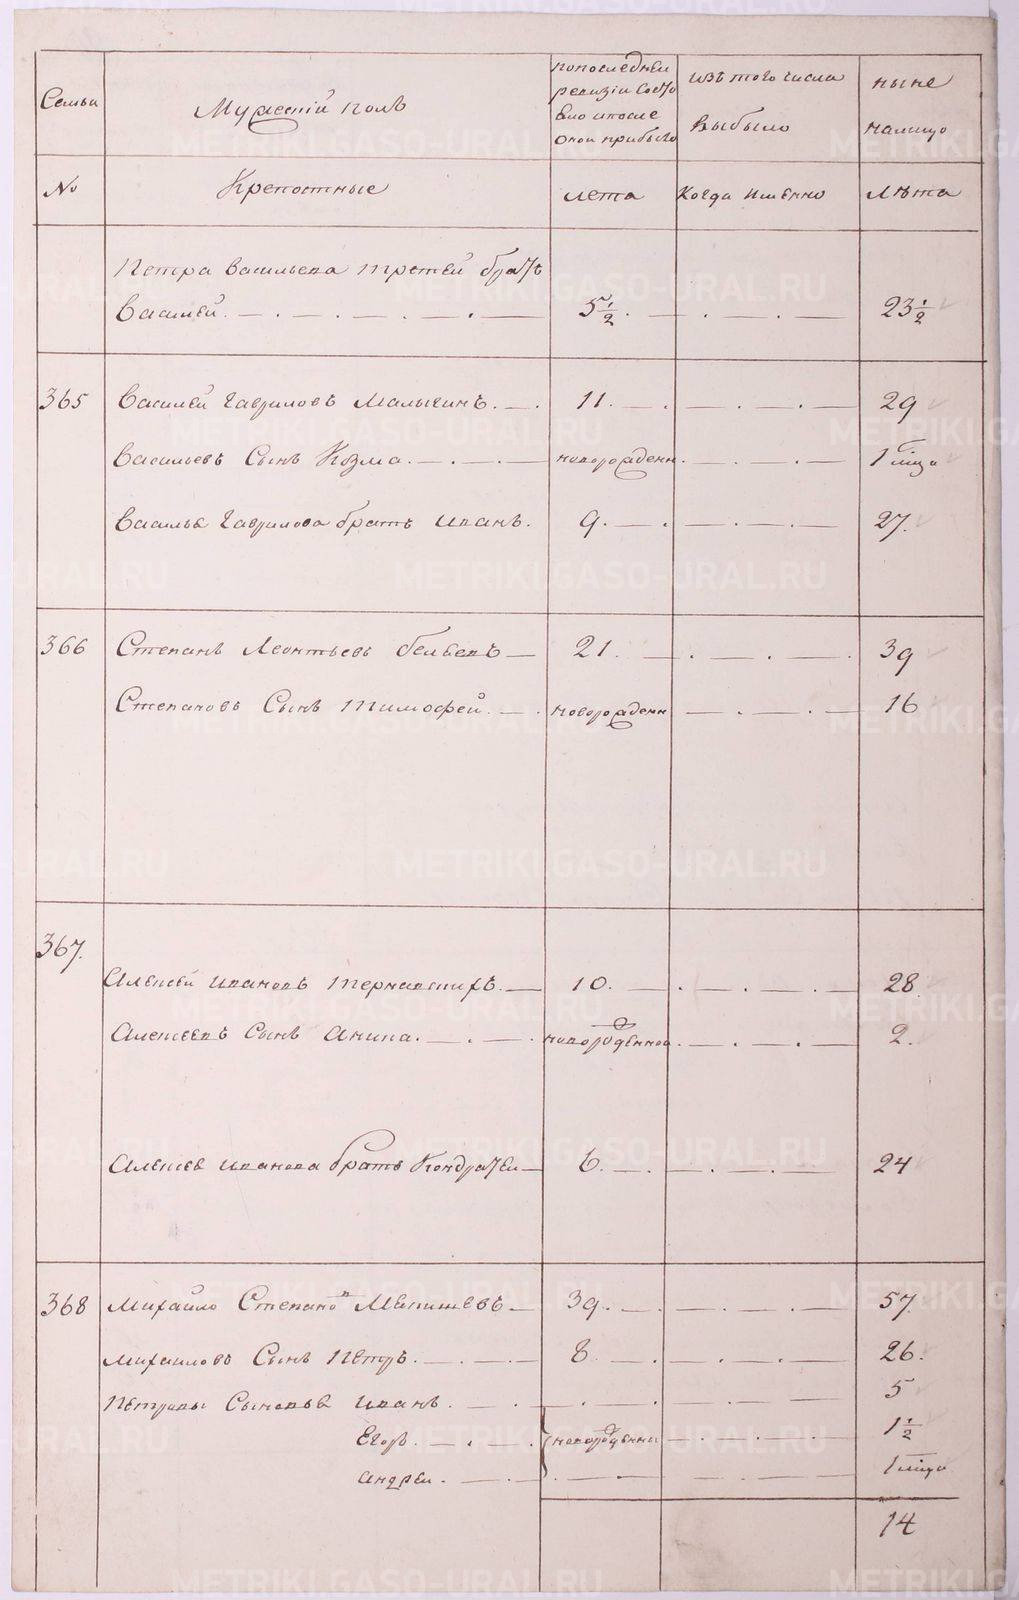 Семьи
Мужескій полъ
попоследней
ревизіи Состо
яло ипосле
оной прибыло
изъ того числа
выбыло
ныне
налицо
№
Крепостные
лета
Когда Имянно
лѣта
Петра васильева третей братъ
Василей. 5½. 23½
365 Василей Гавриловъ Малыгинъ. 11. 29
Васильевъ Сынъ Козма. новорожденн. 1 мѣца
Василья Гаврилова братъ иванъ. 9. 27.
366 Степанъ Леонтьевъ 21. 39
Степановъ Сынъ Тимофей. новорожденн 16
367.
Алексей ивановъ 10. 28
Алексеевъ Сынъ Аникa. новорожденной 2.
Алексея иванова братъ Кондратей 6. 24
368 Михайло Степановъ 39. 57.
Михайловъ Сынъ Петръ. 8. 26.
Петровы Сыновья иванъ. 5
Егоръ. новорожденны 1½
андрей. 1 мѣца
14
METRIKI.GASO-URAL.RU